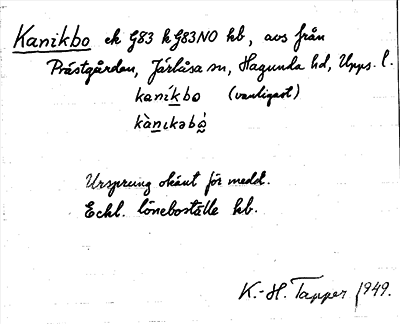 Kanikbo ek G83 k G83NO kb, avs från
Prästgården, Järlåsa sn, Hagunda hd, Upps. l.
kaníkbo (vanligast)
kànɩkəbó̰
Ursprung okänt för medd.
Eckl. löneboställe kb.
K.-H. Tapper 1949.